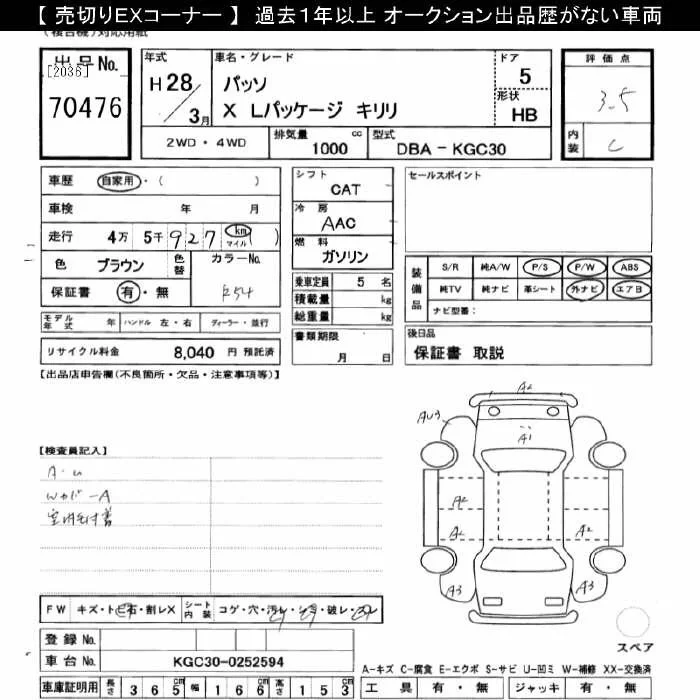 【 売切りEXコーナー 】 過去1年以上 オークション出品歴がない車両
(複合機)対応用紙
出品No.
[2036]
70476
年式
H 28
3月
車名・グレード
パッソ
X Lパッケージ キリリ
ドア
5
形状
HB
評価点
3.5
内装
C
2WD・4WD
排気量
1000
cc
型式
DBA - KGC30
車歴
自家用・( )
車検
年 月
走行
4万 5千 9 2 7
km
マイル
( )
色
ブラウン
色替
カラーNo.
R54
保証書
有・無
モデル年式
年
ハンドル 左・右
ディーラー・並行
リサイクル料金
8,040 円 預託済
シフト
CAT
冷房
AAC
燃料
ガソリン
乗車定員
5 名
積載量
kg
総重量
kg
書類期限
月 日
セールスポイント
装備品
S/R 純A/W P/S P/W ABS
純TV 純ナビ 革シート 外ナビ エアB
ナビ型番:
後日品
保証書 取説
【出品店申告欄(不良箇所・欠品・注意事項等)】
【検査員記入】
A・U
A2
AU3
A1
A2
A2
A2
A3
A3
FW
キズ・ト石・割レX
シート内装
コゲ・穴・汚レ・シミ・破レ・スレ
登録No.
車台No.
KGC30-0252594
車庫証明用
長さ
3 6 5
cm
幅
1 6 6
cm
高さ
1 5 3
cm
スペア
A-キズ C-腐食 E-エクボ S-サビ U-凹ミ W-補修 XX-交換済
工具
有・無
ジャッキ
有・無